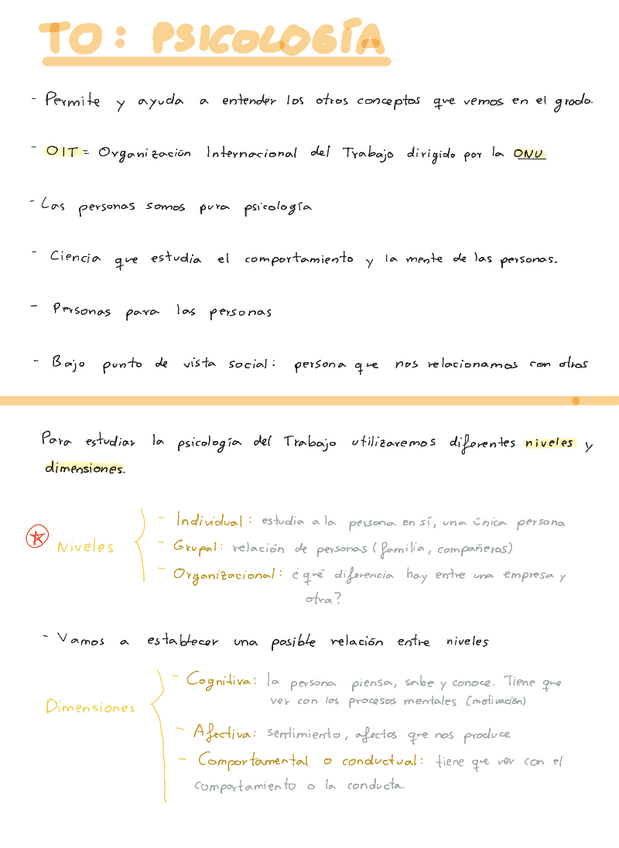 TO: PSICOLOGÍA
- Permite y ayuda a entender los otros conceptos que vemos en el grado.
- OIT = Organización Internacional del Trabajo dirigido por la ONU
- Las personas somos pura psicología
- Ciencia que estudia el comportamiento y la mente de las personas.
- Personas para las personas
- Bajo punto de vista social: persona que nos relacionamos con otros
Para estudiar la psicología del Trabajo utilizaremos diferentes niveles y
dimensiones.
- Individual: estudia a la persona en sí, una única persona
Niveles - Grupal: relación de personas (familia, compañeros)
- Organizacional: ¿qué diferencia hay entre una empresa y
otra?
- Vamos a establecer una posible relación entre niveles
- Cognitiva: la persona piensa, sabe y conoce. Tiene que
ver con los procesos mentales (motivación)
Dimensiones
- Afectiva: sentimiento, afectos que nos produce
- Comportamental o conductual: tiene que ver con el
comportamiento o la conducta.